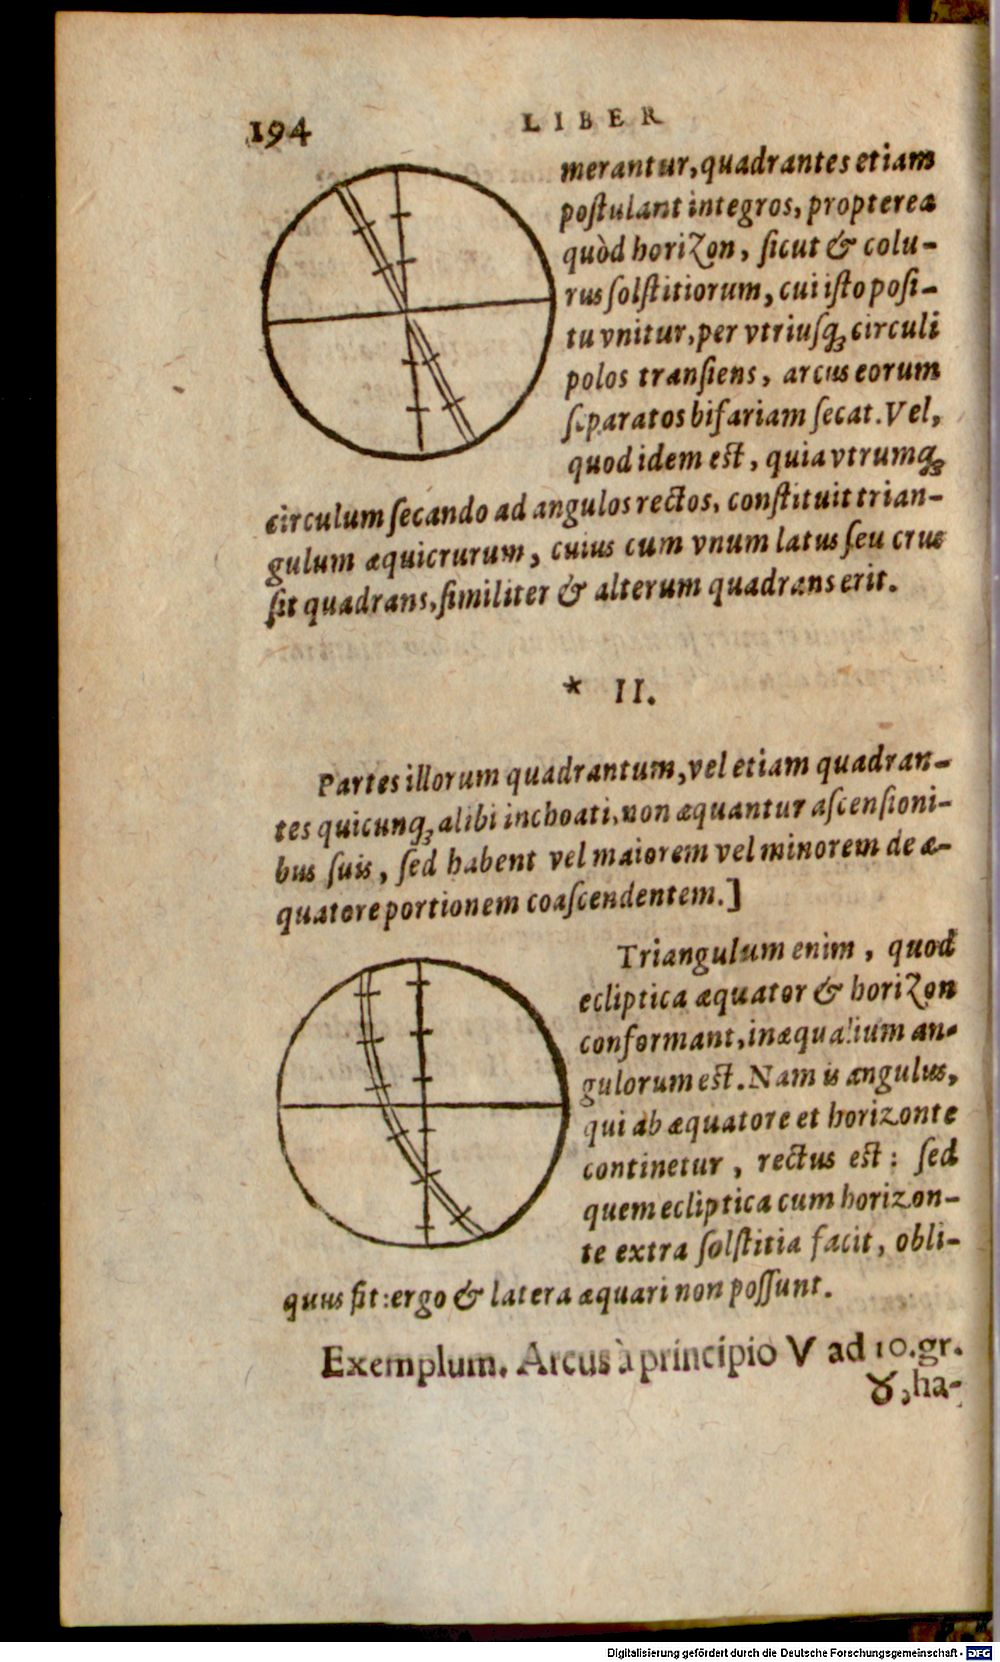 194 LIBER
merantur, quadrantes etiam
poſtulant integros, propterea
quòd horizon, ſicut & colu-
rus ſolſtitiorum, cui iſto poſi-
tu vnitur, per vtriuſq́ꝫ circuli
polos tranſiens, arcus eorum
ſeparatos bifariam ſecat. Vel,
quod idem eſt, quia vtrumq́ꝫ
circulum ſecando ad angulos rectos, conſtituit trian-
gulum æquicrurum, cuius cum vnum latus ſeu crus
ſit quadrans, ſimiliter & alterum quadrans erit.
* II.
Partes illorum quadrantum, vel etiam quadran-
tes quicunq́ꝫ alibi inchoati, non æquantur aſcenſioni-
bus ſuis, ſed habent vel maiorem vel minorem de æ-
quatore portionem coaſcendentem.]
Triangulum enim, quod
ecliptica æquator & horizon
conformant, inæqualium an-
gulorum eſt. Nam is angulus,
qui ab æquatore et horizonte
continetur, rectus eſt: ſed
quem ecliptica cum horizon-
te extra ſolſtitia facit, obli-
quus fit: ergo & latera æquari non poſſunt.
Exemplum. Arcus à principio V ad 10. gr.
♉, ha-
Digitalisierung gefördert durch die Deutsche Forschungsgemeinschaft - DFG